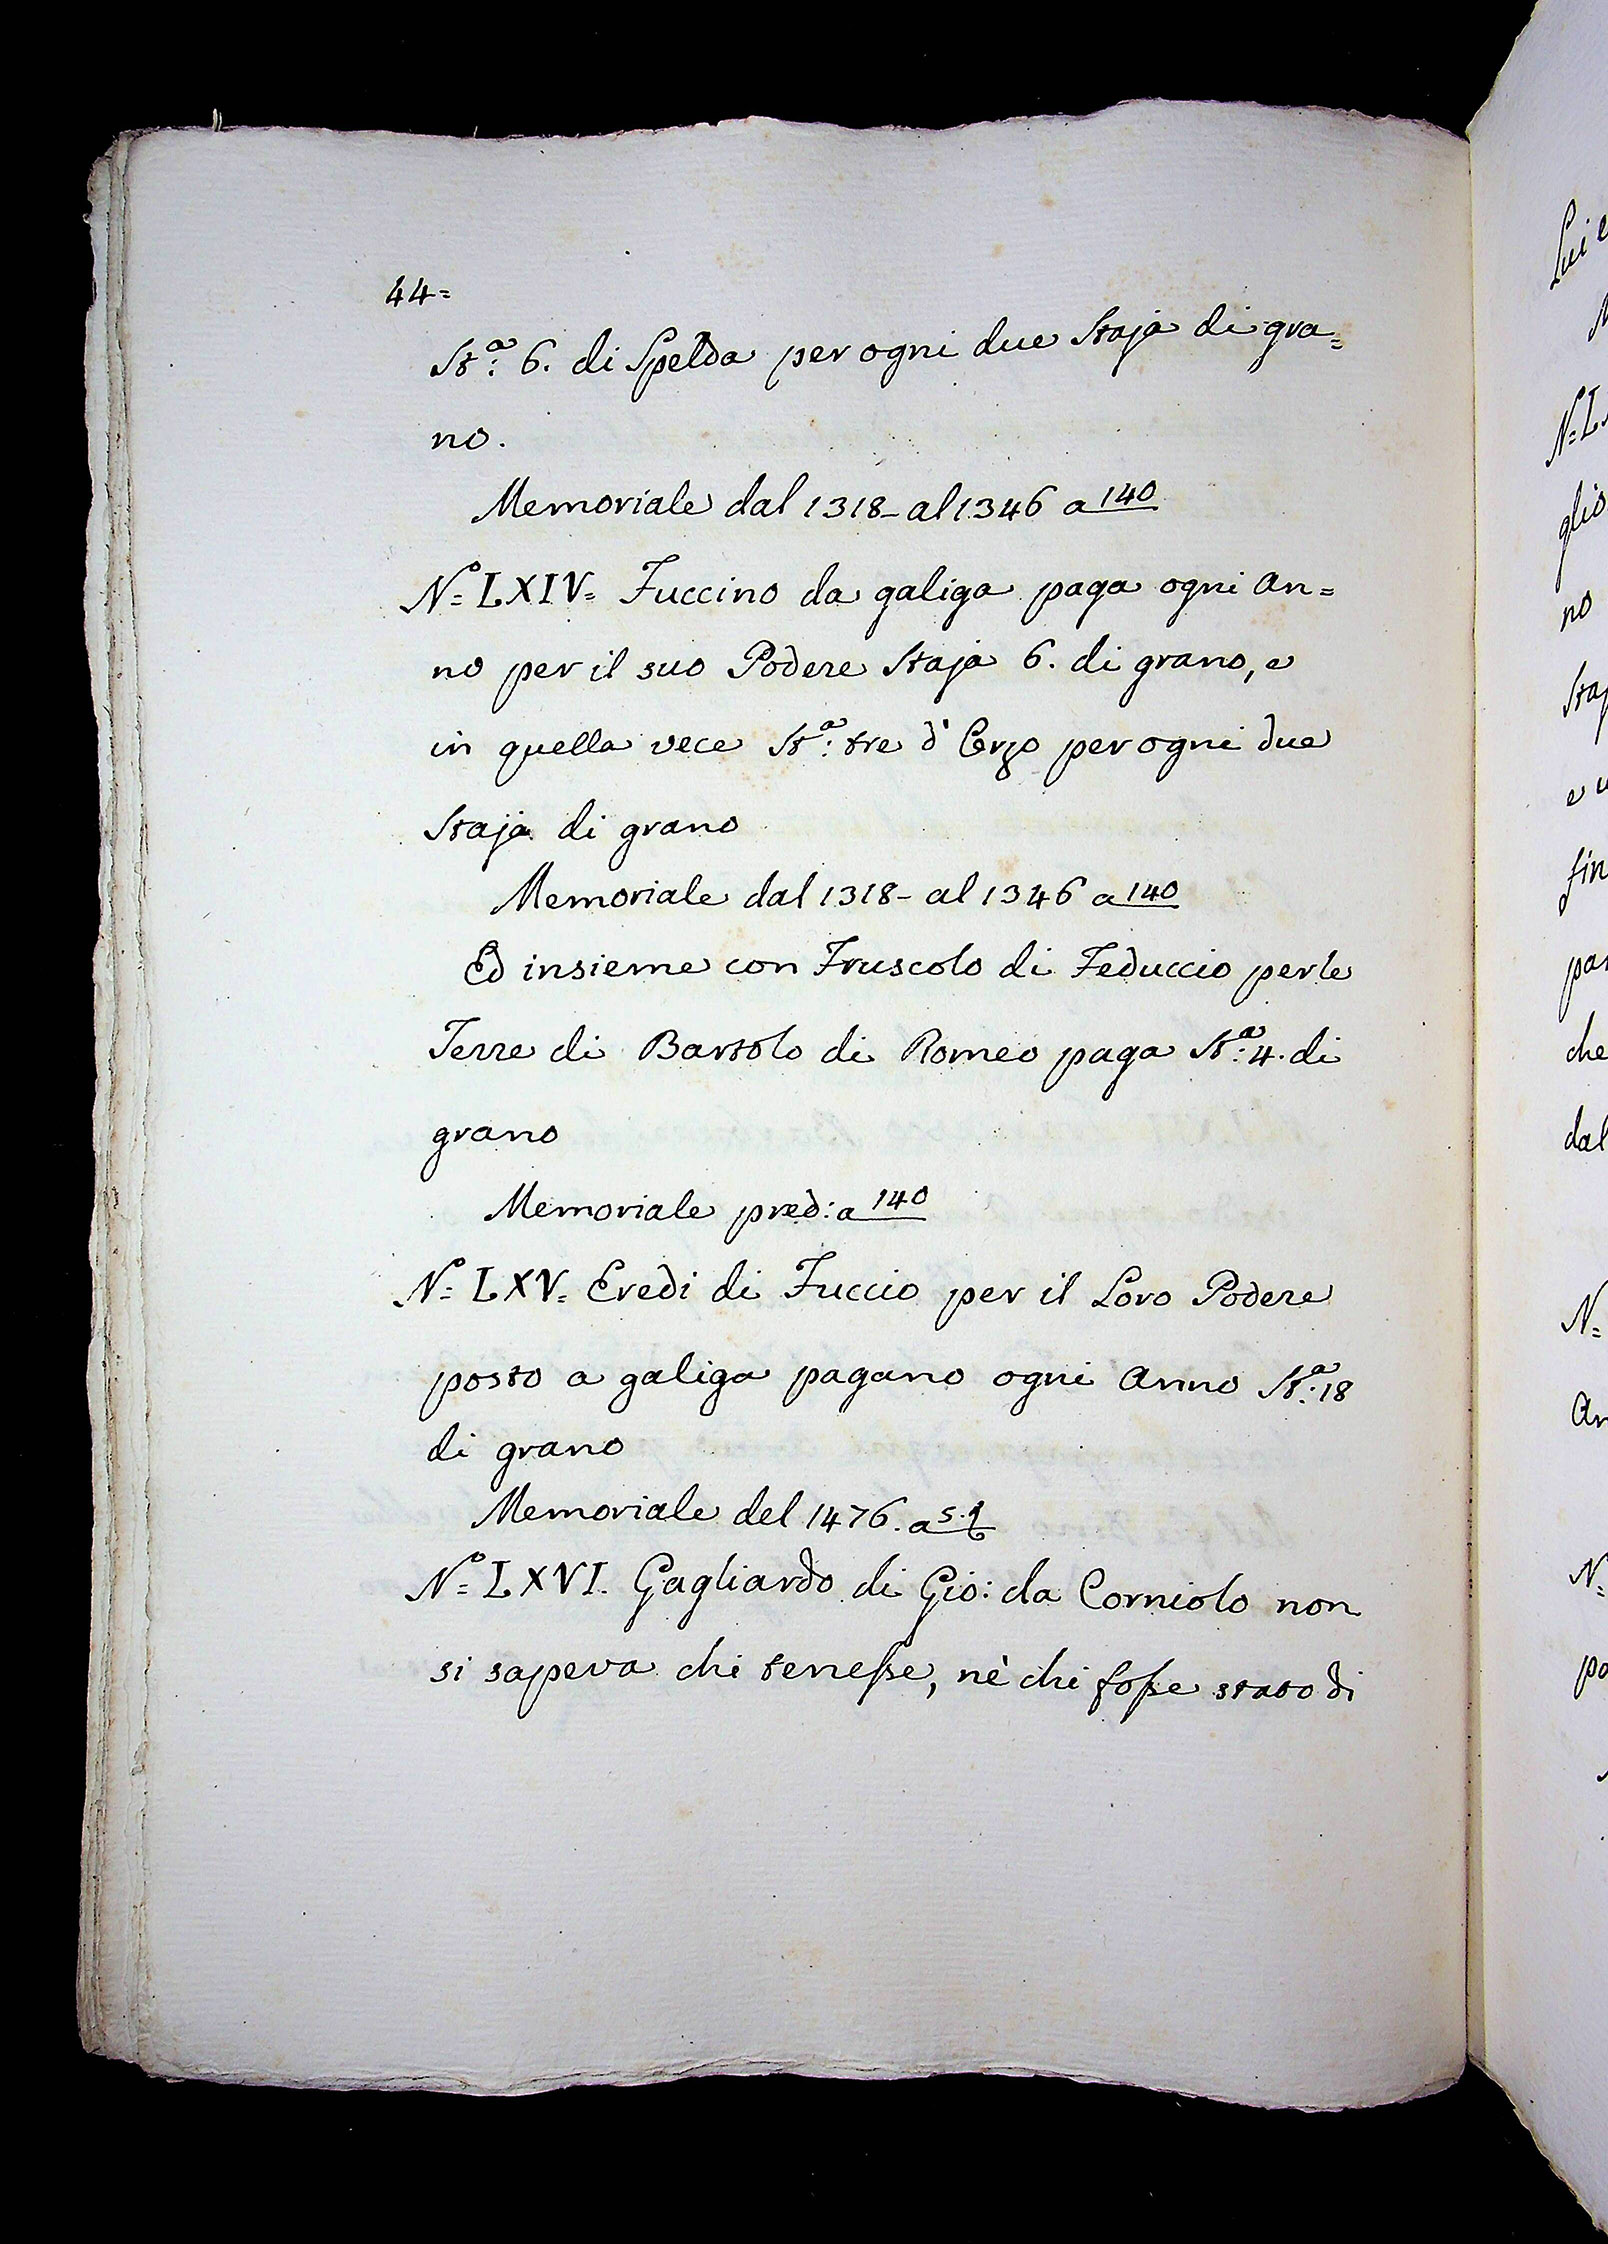 44=
St.ª 6. di Spelda per ogni due Staja di gra=
no.
Memoriale dal 1318- al 1346 a 140
N.º LXIV= Fuccino da galiga paga ogni an=
no per il suo Podere Staja 6. di grano, e
in quella vece St.ª tre d' Orzo per ogni due
Staja di grano
Memoriale dal 1318- al 1346 a 140
Ed insieme con Fruscolo di Feduccio per le
Terre di Bartolo di Romeo paga St.ª 4. di
grano
Memoriale pred: a 140
N.º LXV= Eredi di Fuccio per il Loro Podere
posto a galiga pagano ogni Anno St.ª 18
di grano
Memoriale del 1476. a
N.º LXVI. Gagliardo di Gio: da Corniolo non
si sapeva chi tenesse, nè chi fosse stato di